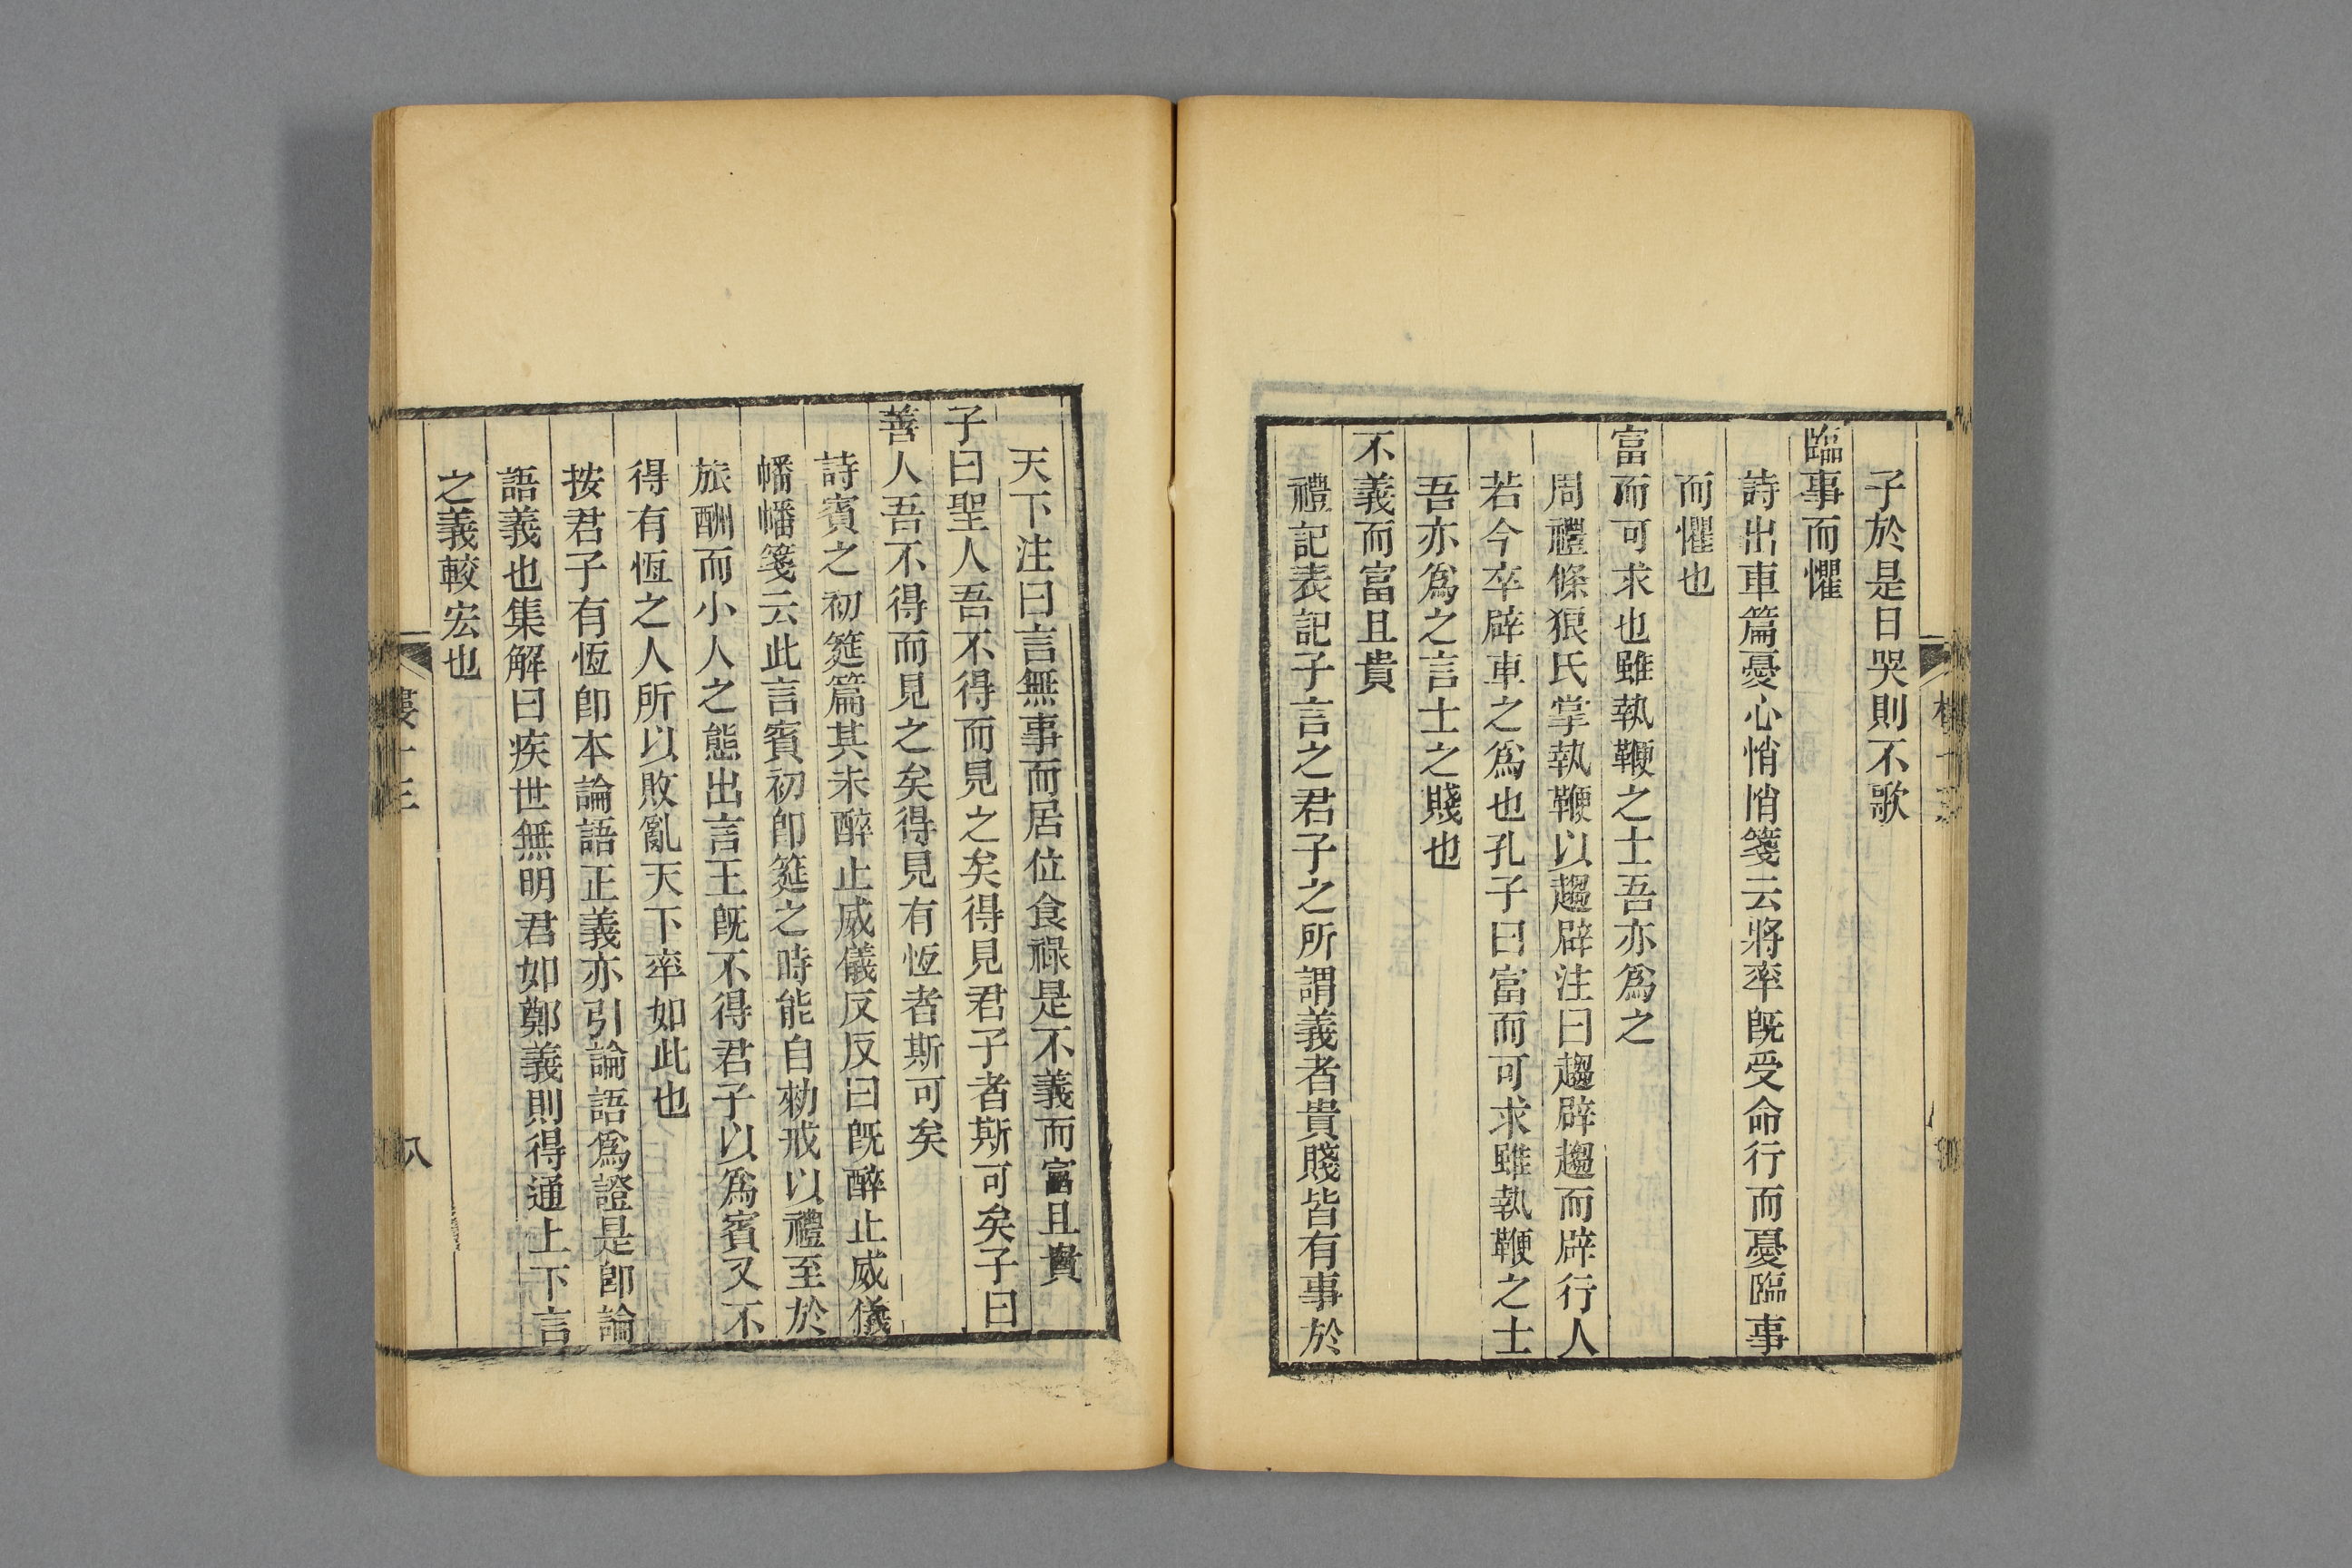 子於是日哭則不歌
臨事而懼
詩出車篇憂心悄悄箋云將率旣受命行而憂臨事
而懼也
富而可求也雖執鞭之士吾亦爲之
周禮條狼氏掌執鞭以趨辟注曰趨辟趨而辟行人
若今卒辟車之爲也孔子曰富而可求雖執鞭之士
吾亦爲之言士之賤也
不義而富且貴
禮記表記子言之君子之所謂義者貴賤皆有事於
天下注曰言無事而居位食祿是不義而富且貴
子曰聖人吾不得而見之矣得見君子者斯可矣子曰
善人吾不得而見之矣得見有恆者斯可矣
詩賓之初筵篇其未醉止威儀反反曰旣醉止威儀
幡幡箋云此言賓初卽筵之時能自勑戒以禮至於
旅酬而小人之態出言王旣不得君子以爲賓又不
得有恆之人所以敗亂天下率如此也
按君子有恆卽本論語正義亦引論語爲證是卽論
語義也集解曰疾世無明君如鄭義則得通上下言
之義較宏也
十三
八